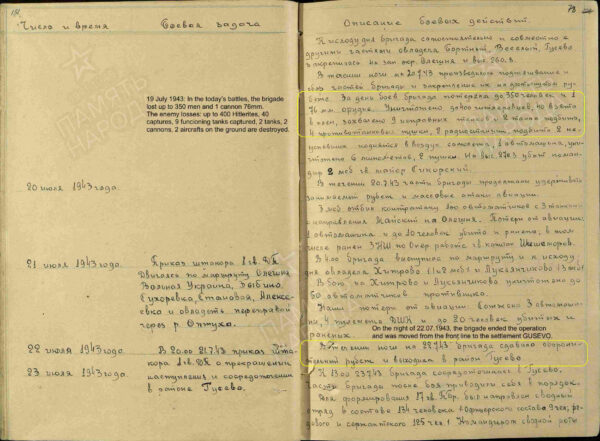 Число и время
Боевая задача
19 July 1943: In the today's battles, the brigade
lost up to 350 men and 1 cannon 76mm.
The enemy losses: up to 400 Hitlerites, 40
captures, 9 funcioning tanks captured, 2 tanks, 2
cannons, 2 aircrafts on the ground are destroyed.
20 июля 1943 года
21 июля 1943 года.
Приказ штакора 1 гв. ДК
Двигаясь по маршруту Олешня
Вольная Украина, Дыбино
Сухоревка, Становая, Алексе-
евка и овладеть переправой
через р. Оптуха.
22 июля 1943 года
В 20.00 21.7.43 приказ Шта-
кора 1 гв. ДК о прекращении
23 июля 1943 года.
наступления и сосредоточении
в районе Гусево.
73
Описание боевых действий.
К исходу дня бригада самостоятельно и совместно с
другими частями овладела Веселый, Гусево
закрепилась на зап. окр. Олешня и выс. 260.3.
В течении ночи на 20.7.43 производилось подтягивание
частей бригады и закрепление их на достигнутом ру-
беже. За день боев бригада потеряла до 350 человек и 1
76 мм. орудие. Уничтожено до 400 гитлеровцев, 40 взято
в плен, захвачено 9 исправных танков, 2 танка подбито,
4 противотанковых пушки, 2 радиостанции, подбито 2 не
успевших подняться в воздух самолета, 1 автомашина, уни-
чтожено 6 минометов, 2 пушки. На выс. убит коман-
дир 2 мсб гв. майор Сикорский.
В течении 20.7.43 части бригады продолжали удерживать
занимаемый рубеж и массовые атаки авиации.
3 мсб отбил контратаку 100 автоматчиков с 3 танками
с направления Майский на Олешня. Потери от авиации:
1 автомашина и до 10 человек убито и ранено, в том
числе ранен ЗНШ по Опер. работе гв. капитан
бригада выступила по маршруту и к исходу
дня овладела Хитрово (1 и 2 мсб) и Лукьянчиково (3 мсб)
В бою за Хитрово и Лукьянчиково уничтожено до
60 автоматчиков противника.
Наши потери от авиации: сожжено 3 автомаши-
ны, 4 пулемета ДШК и до 20 человек убитых и
раненых.
On the night of 22.07.1943, the brigade ended the operation
and was moved from the front line to the settlement GUSEVO.
В течении ночи на 22.7.43 бригада сдавала оборони-
тельный рубеж и выходила в район Гусево
К 13.00 23.7.43 бригада сосредоточилась в Гусево.
Части бригады после боя приводили себя в порядок.
Для формирования бригада направлен сводный
отряд в составе 134 человека офицерского состава 9 чел; ря-
дового и сержантского 125 чел. Командиром сводной роты